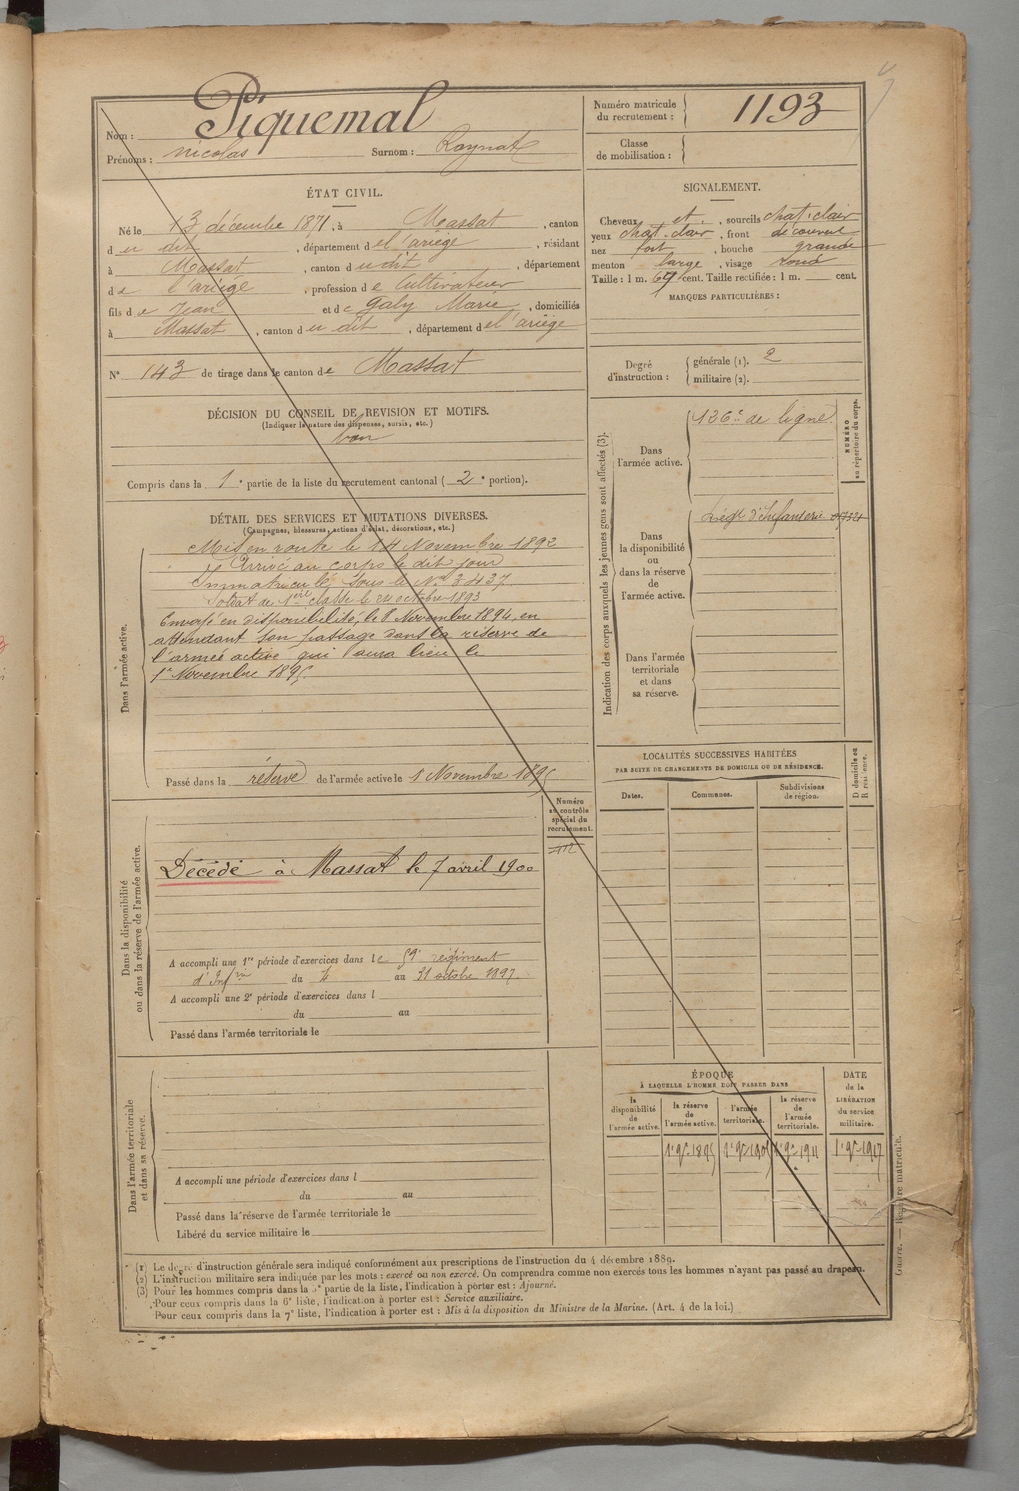 Nom : Piquemal
Prénoms : nicolas Surnom : Raynat
Numéro matricule du recrutement : 1193
Classe de mobilisation :
ÉTAT CIVIL.
Né le 13 décembre 1871, à Massat, canton
du dit, département de l'ariège, résidant
à Massat, canton du dit, département
de l'ariège, profession de Cultivateur
fils de Jean et de Galy Marie, domiciliés
à Massat, canton du dit, département de l'ariège
N° 143 de tirage dans le canton de Massat
SIGNALEMENT.
Cheveux et, sourcils chat. clair
yeux chat. clair, front découvert
nez fort, bouche grande
menton large, visage rond
Taille : 1 m. 69 cent. Taille rectifiée : 1 m. cent.
MARQUES PARTICULIÈRES :
Degré d'instruction : générale (1). 2
militaire (2).
DÉCISION DU CONSEIL DE REVISION ET MOTIFS.
(Indiquer la nature des dispenses, sursis, etc.)
bon
Compris dans la 1e partie de la liste du recrutement cantonal (2e portion).
DÉTAIL DES SERVICES ET MUTATIONS DIVERSES.
(Campagnes, blessures, actions d'éclat, décorations, etc.)
Dans l'armée active.
Mis en route le 14 Novembre 1892
Arrivé au corps le dit jour
Immatriculé sous le N° 3437
Soldat de 1ère classe le 24 octobre 1893
Envoyé en disponibilité, le 8 Novembre 1894, en
attendant son passage dans la réserve de
l'armée active qui aura lieu le
1er Novembre 1895
Passé dans la réserve de l'armée active le 1 Novembre 1895
Indication des corps auxquels les jeunes gens sont affectés (3).
NUMÉRO au répertoire du corps.
Dans l'armée active.
126e de ligne
Dans la disponibilité ou dans la réserve de l'armée active.
Régt d'Infanterie
Dans l'armée territoriale et dans sa réserve.
LOCALITÉS SUCCESSIVES HABITÉES
PAR SUITE DE CHANGEMENTS DE DOMICILE OU DE RÉSIDENCE.
Dates. Communes. Subdivisions de région. D domicile ou R résidence.
Dans la disponibilité ou dans la réserve de l'armée active.
Numéro au contrôle spécial du recrutement.
Décédé à Massat le 7 avril 1900
A accompli une 1re période d'exercices dans le 59e régiment
d'Infrie du 4 au 31 octobre 1897.
A accompli une 2e période d'exercices dans l
du au
Passé dans l'armée territoriale le
Dans l'armée territoriale et dans sa réserve.
A accompli une période d'exercices dans l
du au
Passé dans la réserve de l'armée territoriale le
Libéré du service militaire le
ÉPOQUE
À LAQUELLE L'HOMME DOIT PASSER DANS
la disponibilité de l'armée active. la réserve de l'armée active. l'armée territoriale. la réserve de l'armée territoriale.
DATE de la LIBÉRATION du service militaire.
1er 9bre 1895 1er 9bre 1905 1er 9bre 1911 1er 9bre 1917
Guerre. — Registre matricule.
(1) Le degré d'instruction générale sera indiqué conformément aux prescriptions de l'instruction du 4 décembre 1889.
(2) L'instruction militaire sera indiquée par les mots : exercé ou non exercé. On comprendra comme non exercés tous les hommes n'ayant pas passé au drapeau.
(3) Pour les hommes compris dans la 5e partie de la liste, l'indication à porter est : Ajourné.
Pour ceux compris dans la 6e liste, l'indication à porter est : Service auxiliaire.
Pour ceux compris dans la 7e liste, l'indication à porter est : Mis à la disposition du Ministre de la Marine. (Art. 4 de la loi.)